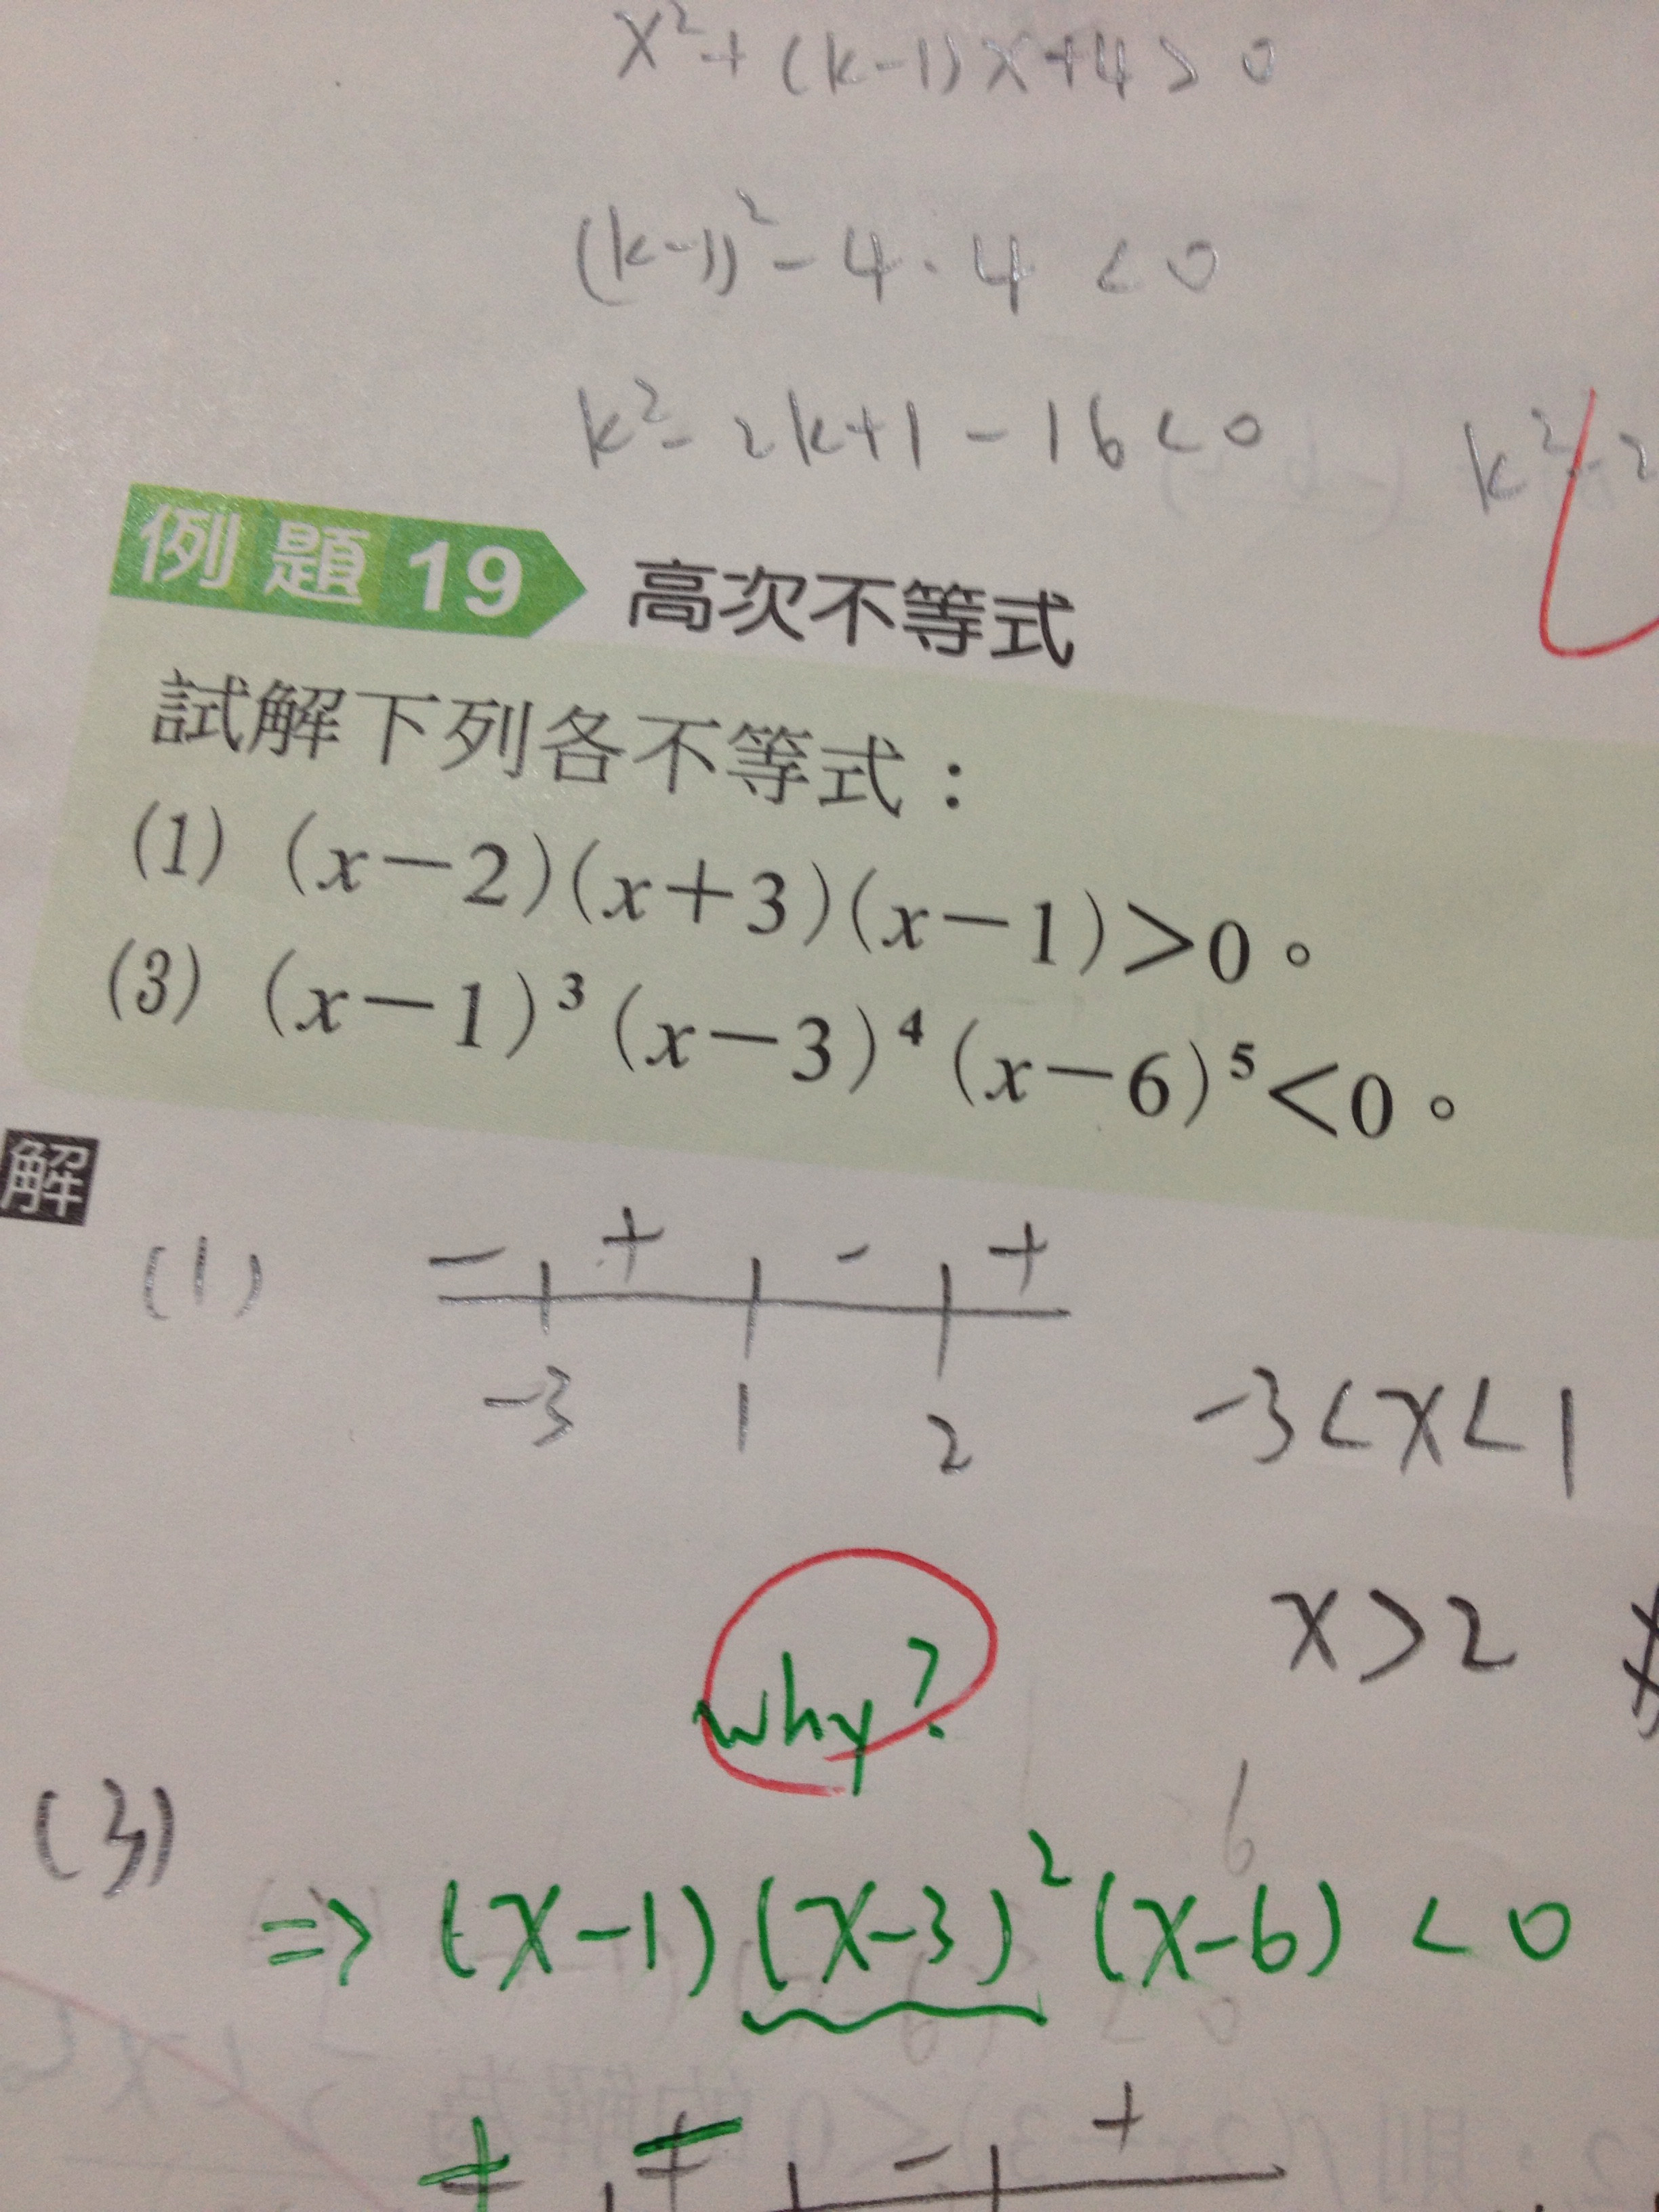 x²+(k-1)x+4>0
(k-1)²-4·4<0
k²-2k+1-16<0
k²-2
例題 19 高次不等式
試解下列各不等式：
(1) (x-2)(x+3)(x-1)>0。
(3) (x-1)³(x-3)⁴(x-6)⁵<0。
解
(1) - + - +
-3 1 2
-3<x<1
x>2
why?
6
(3)
⇒ (x-1)(x-3)²(x-6)<0
- +